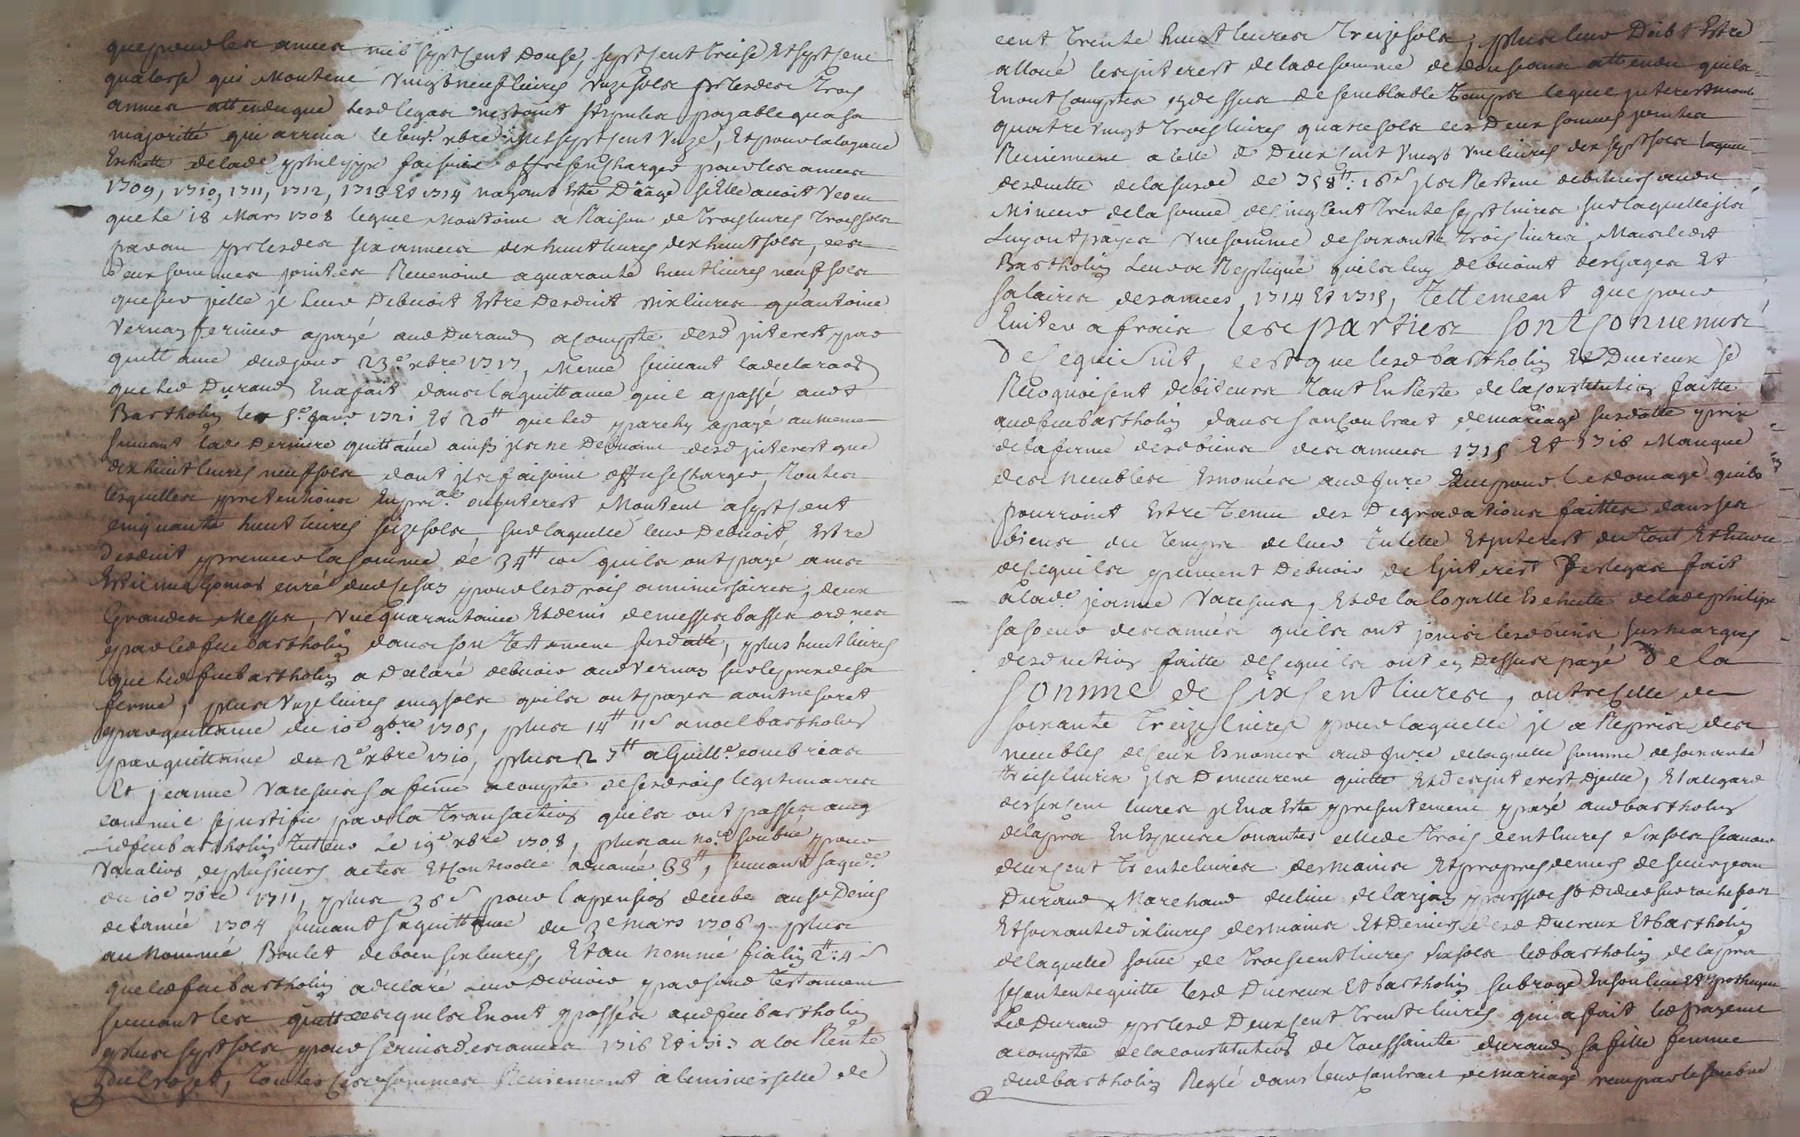 que pour les annees mil sept cent douse, sept cent treise et sept cent
quatorse qui montent vingt neuf livres unze sols pr lesdes trois
annees attendu que lesd legas n'estoit stipulés payable qua sa
majorité qui arriva le xbre mil sept cent unze, et pour la
Eschutte de lade philippe faisoint offre se charger pour les annees
1709, 1710, 1711, 1712, 1713 et 1714 nayant Esté si Elle avoit vescu
que le 18 mars 1708 lequel montoint a Raison de trois livres trois sols
par an pr lesdes six annees dix huit livres dix huit sols, ces
deux sommes jointes Revenoint a quarante huit livres neuf sols
que sur jcelle jl leur debvoit Estre desduit livres qu'antoine
Vernay fermier a payé aud Durand a compte desd jnterest par
quittance dud jour 23e xbre 1717, meme suivant la declaraon
que led Durand En a fait dans la quittance qu'il a passé aud
Bartholin le 5e janv 1721 et 20tt que led a payé au meme
suivant lade derniere quittance ainsy jls ne debvoint desd jnterest que
dix huit livres neuf sols dont jls faisoint offre se charger, toutes
lesquelles pretentions En pral ou jnterest montent a sept cent
cinquante huit livres seize sols, sur laquelle leur debvoit Estre
desduit premier la somme de 34tt qu'ils ont payé a mre
curé dud pour lesd trois anniversaires, deux
Grandes Messes, une quarantaine Et demi de messes basses ordnes
par led feu bartholin dans son testament susdatté, plus huit livres
que led feu bartholin a declaré debvoir aud Vernay sur le prix de sa
ferme, plus unze livres cinq sols qu'ils ont payes a
par quittance du 10e 9bre 1705, plus 14tt 11s a noel bartholin
par quittance du 2e xbre 1710, plus 23tt a Guille combrias
Et jeanne Varesnes sa femme a compte de ses droits legitimaires
comme se justifie par la transaction qu'ils ont passés avec
led feu bartholin tuteur le 19e xbre 1708, plus au no.re soubné pour
vacations de plusieurs actes Et controolle avancé 33tt, suivant sa
du 10e 7bre 1711, plus 36s pour la pension deube au Sr Denis
de lannée 1704 suivant sa quittance du 3e mars 1706, plus
au nommé Boulet debven six livres, Et au nommé fialin 2tt:4s
que led feu bartholin a declaré leur debvoir par sond testament
suivant les quittces qu'ils En ont passés aud feu bartholin
plus sept sols pour servis des annees 1716 et 1717 a la Rente
, toutes ces sommes Reviennent a la universelle de
cent trente huit livres treize sols; plus leur doibt Estre
alloué les jnterest de lade somme de ans attendu qu'ils
En ont comptés cy dessus de semblable temps lequel jnterest monte
quatre vingt trois livres quatre sols ces deux sommes jointes
Reviennent a celle de deux cent vingt une livres dix sept sols laquelle
desduitte de la susde de 758tt: 16s jls Restent debiteurs aud
Mineur de la somme de cinq cent trente sept livres sur laquelle jls
Luy ont payés une somme de soixante trois livres, mais ledt
Bartholin leur a Repliqué qu'ils luy debvoint des gages Et
salaires des annees 1714 Et 1715, tellement que pour
Eviter a frais les parties sont convenues
de ce qui suit, c'est que lesd bartholin Et Ducreux se
Recognoisent debiteurs tant En Reste de la constitution faitte
aud feu bartholin dans son contract de mariage susdatté prix
de la ferme desd biens des annees 1715 Et 1716 manque
des meubles Enoncés aud jnvre que pour les domages qu'ils
pourroint Estre tenu des degradations faittes dans ses
biens du temps de leur tutelle Et jnterest du tout
de ce qu'ils peuvent debvoir de l'jnterest des legas fait
a lade jeanne Varesnes, Et de la Eschutte de lade philipe
sa soeur des annees qu'ils ont jouis lesd biens susmarqués
desduction faitte de ce qu'ils ont cy dessus payé de la
somme de six cent livres, outre celle de
soixante treize livres pour laquelle jl a Repris des
meubles de ceux Enoncés aud jnvre de laquelle somme de soixante
treize livres jls demeurent quitte Et des jnterest d'jcelle, Et a legard
des six cent livres jl En a Esté presentement payé aud bartholin
de la pra En Espeuses celle de trois cent livres six sols scavoir
deux cent trente livres des mains Et propres deniers de sieur jean
Durand marchand du lieu de larjas parroisse de St Didier sur rochefort
Et soixante dix livres des mains Et deniers desd Ducreux Et bartholin
de laquelle some de trois cent livres six sols led bartholin de la pra
se contente quitte lesd Ducreux Et bartholin subrogé En son lieu Et ypotheque
Led Durand pr lesd deux cent trente livres, qui a fait led payement
a compte de la constitution de toussainte durand sa fille femme
dud bartholin Reglé dans leur contract de mariage receu par le soubné